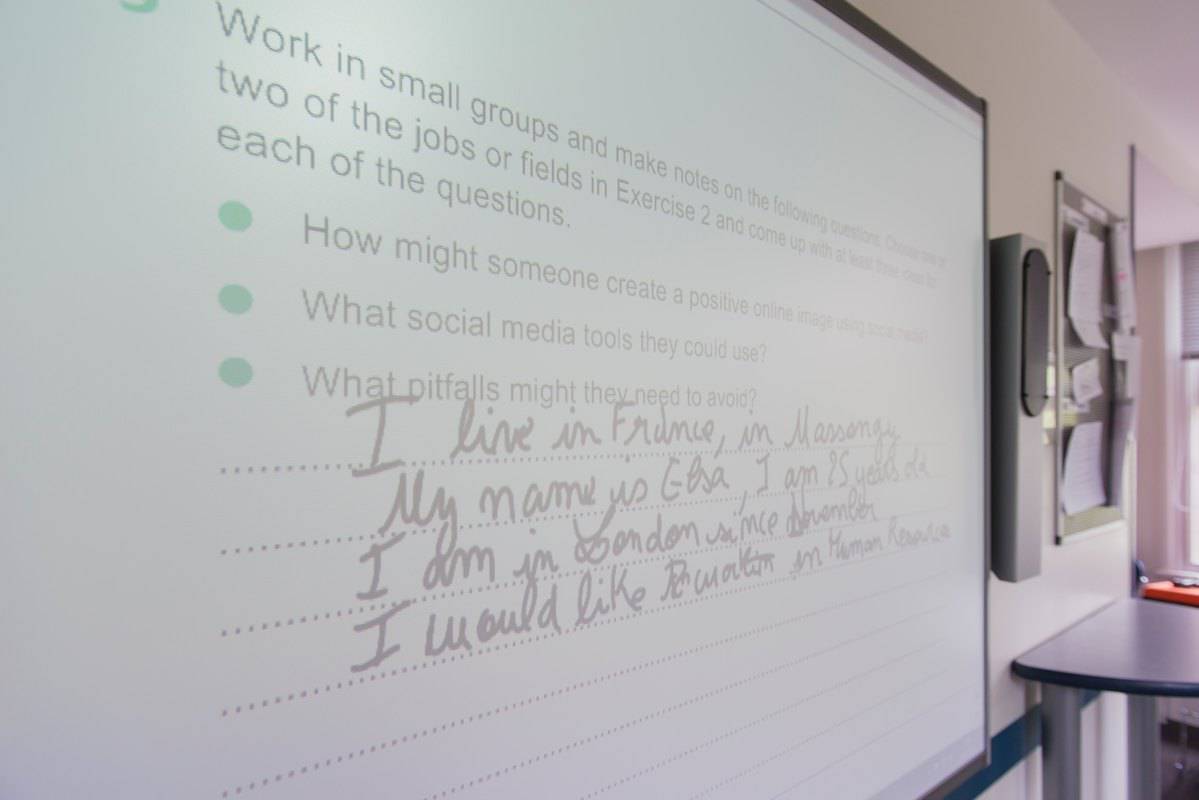 Work in small groups and make notes on the following questions. Choose one or
two of the jobs or fields in Exercise 2 and come up with at least three ideas for
each of the questions.
How might someone create a positive online image using social media?
What social media tools they could use?
What pitfalls might they need to avoid?
I live in France, in
My name is Elsa, I am 25 years old
I am in London since November
I would like in Human Resources